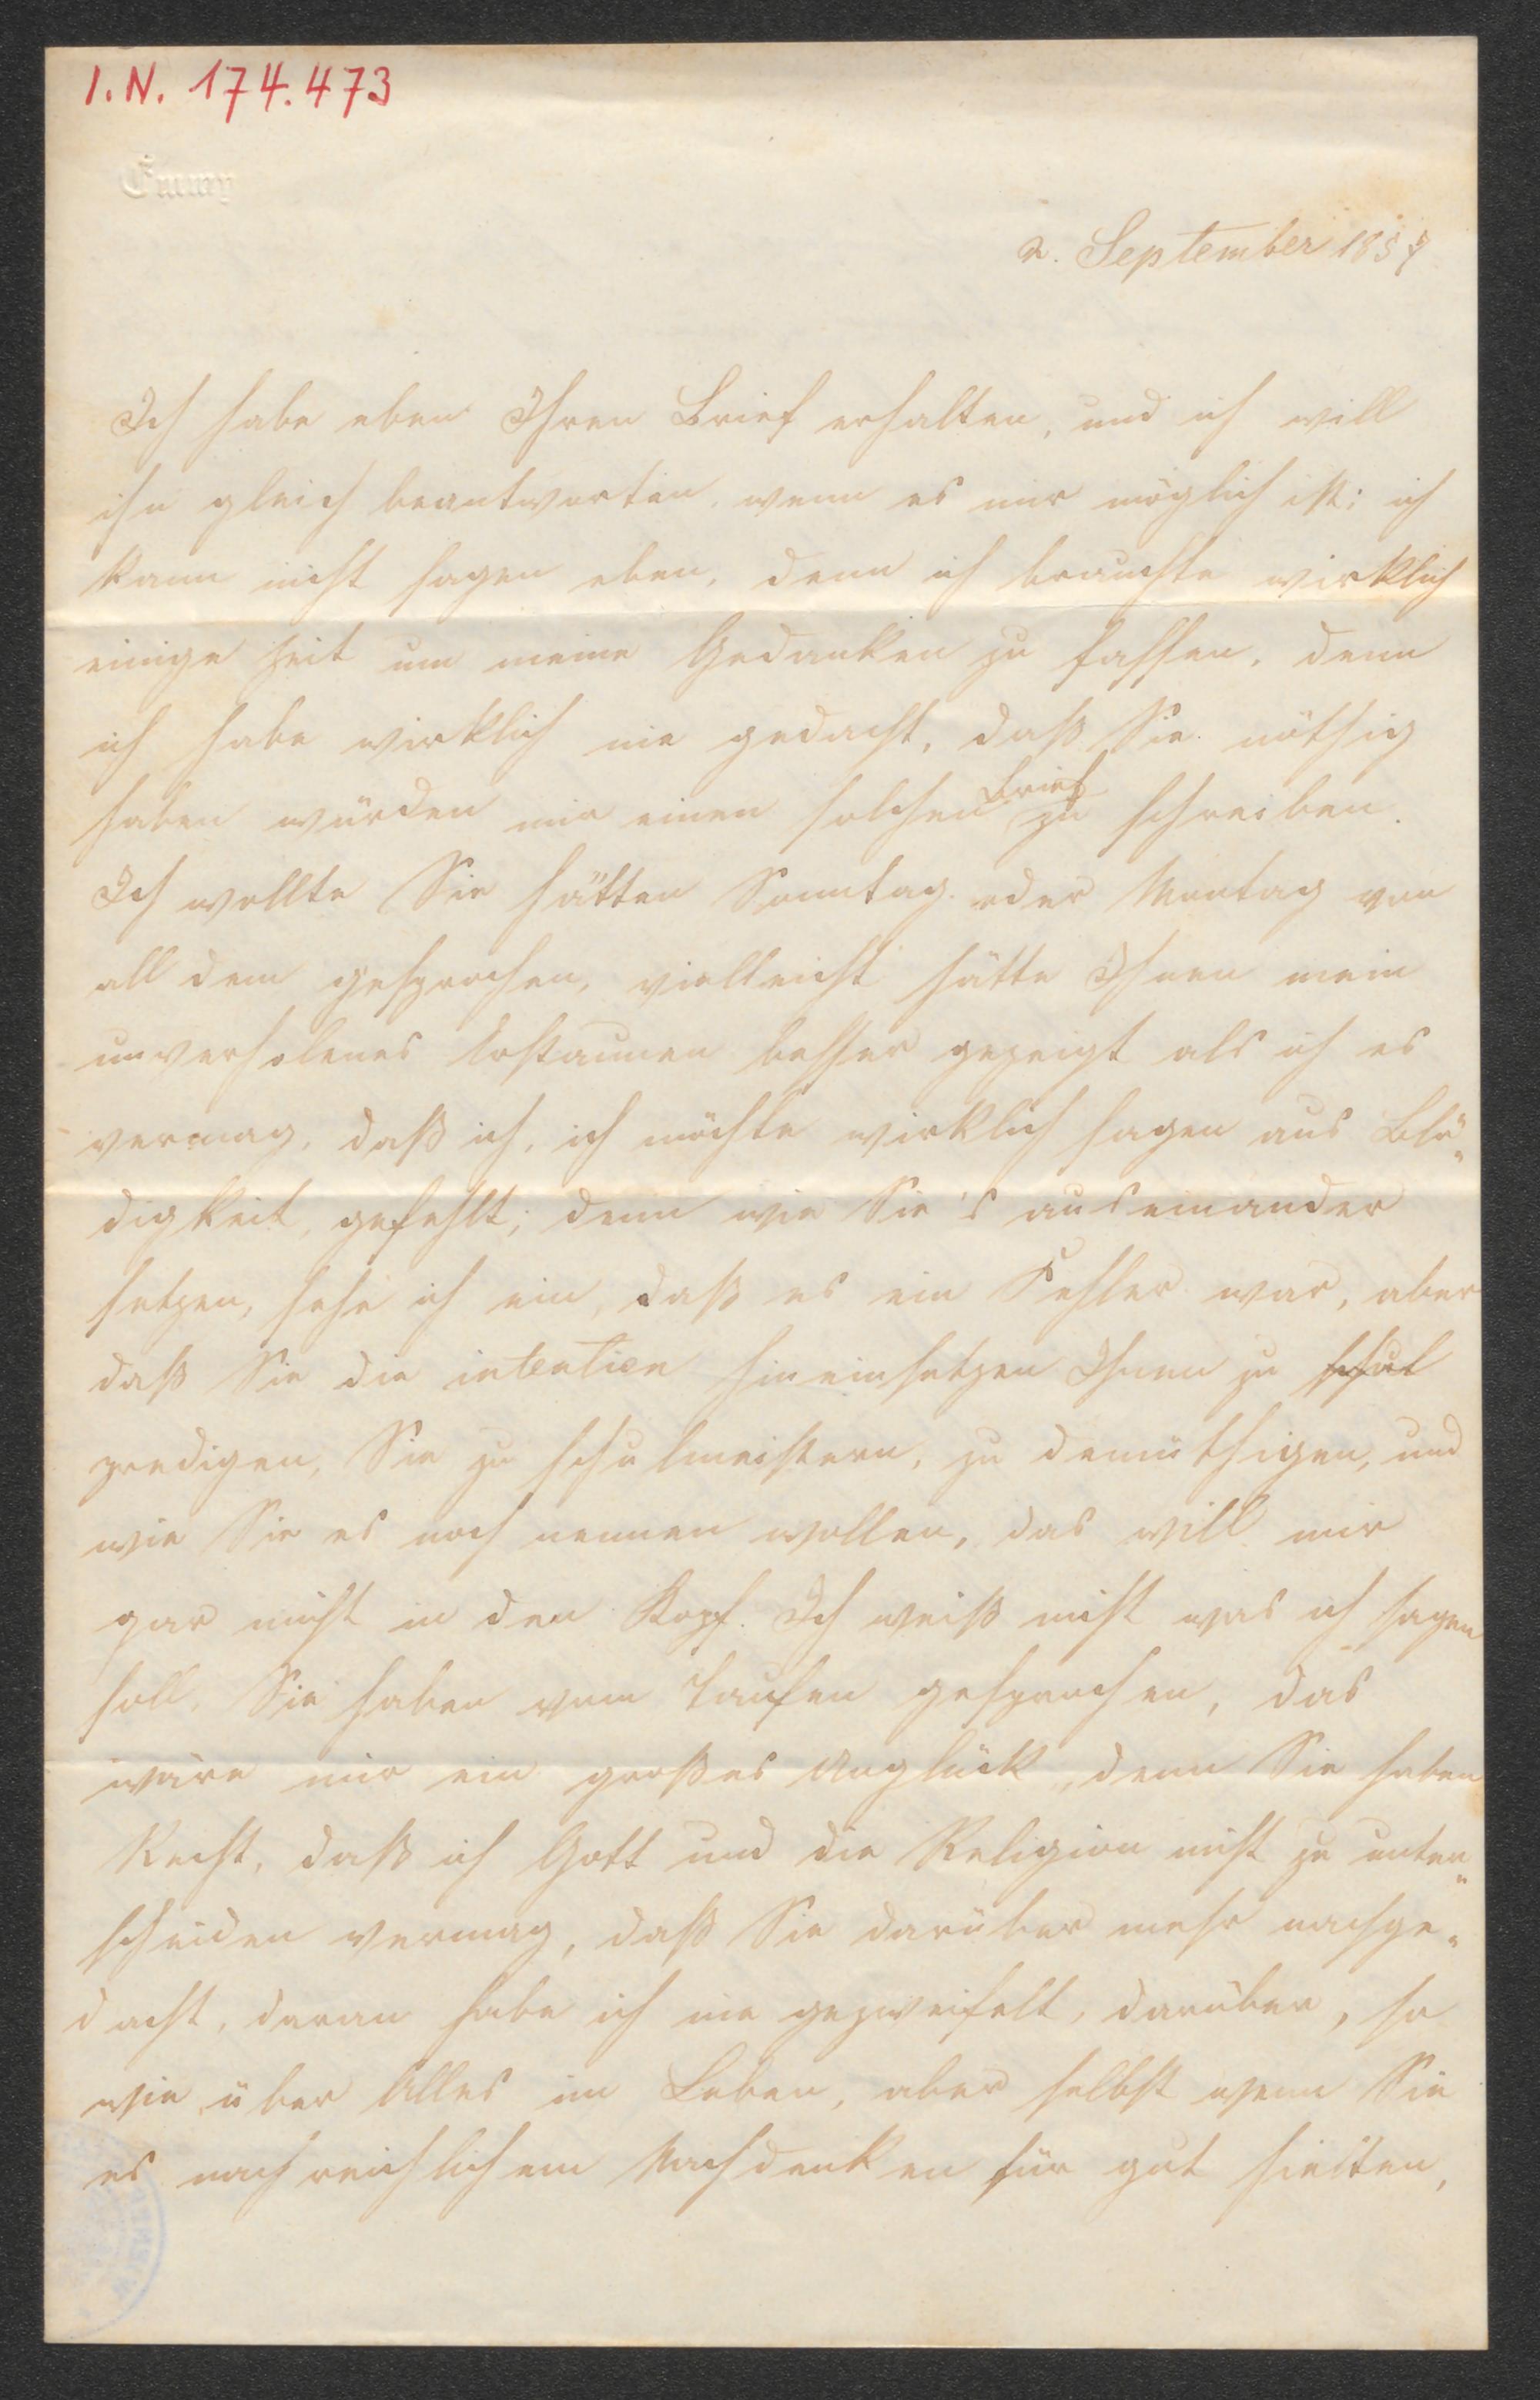 I. N. 174.473
Emmy
2. September 1857
Ich habe eben Ihren Brief erhalten, und ich will
ihn gleich beantworten, wenn es mir möglich ist; ich
kann nicht sagen eben, denn ich brauchte wirklich
einige Zeit um meine Gedanken zu fassen, denn
ich habe wirklich nie gedacht, daß Sie nöthig
haben würden mir einen solchen Brief zu schreiben.
Ich wollte Sie hätten Sonntag oder Montag von
all dem gesprochen, vielleicht hätte Ihnen mein
unverholenes Erstaunen besser gezeigt als ich es
vermag, daß ich, ich möchte wirklich sagen aus Blö-
digkeit, gefehlt; denn wie Sie's auseinander
setzen, sehe ich ein, daß es ein Fehler war, aber
daß Sie die intention hineinsetzen Ihnen zu schul
predigen, Sie zu schulmeistern, zu demüthigen, und
wie Sie es noch nennen wollen, das will mir
gar nicht in den Kopf. Ich weiß nicht was ich sagen
soll. Sie haben vom Taufen gesprochen, das
wäre mir ein großes Unglück, denn Sie haben
Recht, daß ich Gott und die Religion nicht zu unter-
scheiden vermag, daß Sie darüber mehr nachge-
dacht, daran habe ich nie gezweifelt, darüber, so
wie über Alles im Leben, aber selbst wenn Sie
es nach reichlichem Nachdenken für gut hielten,